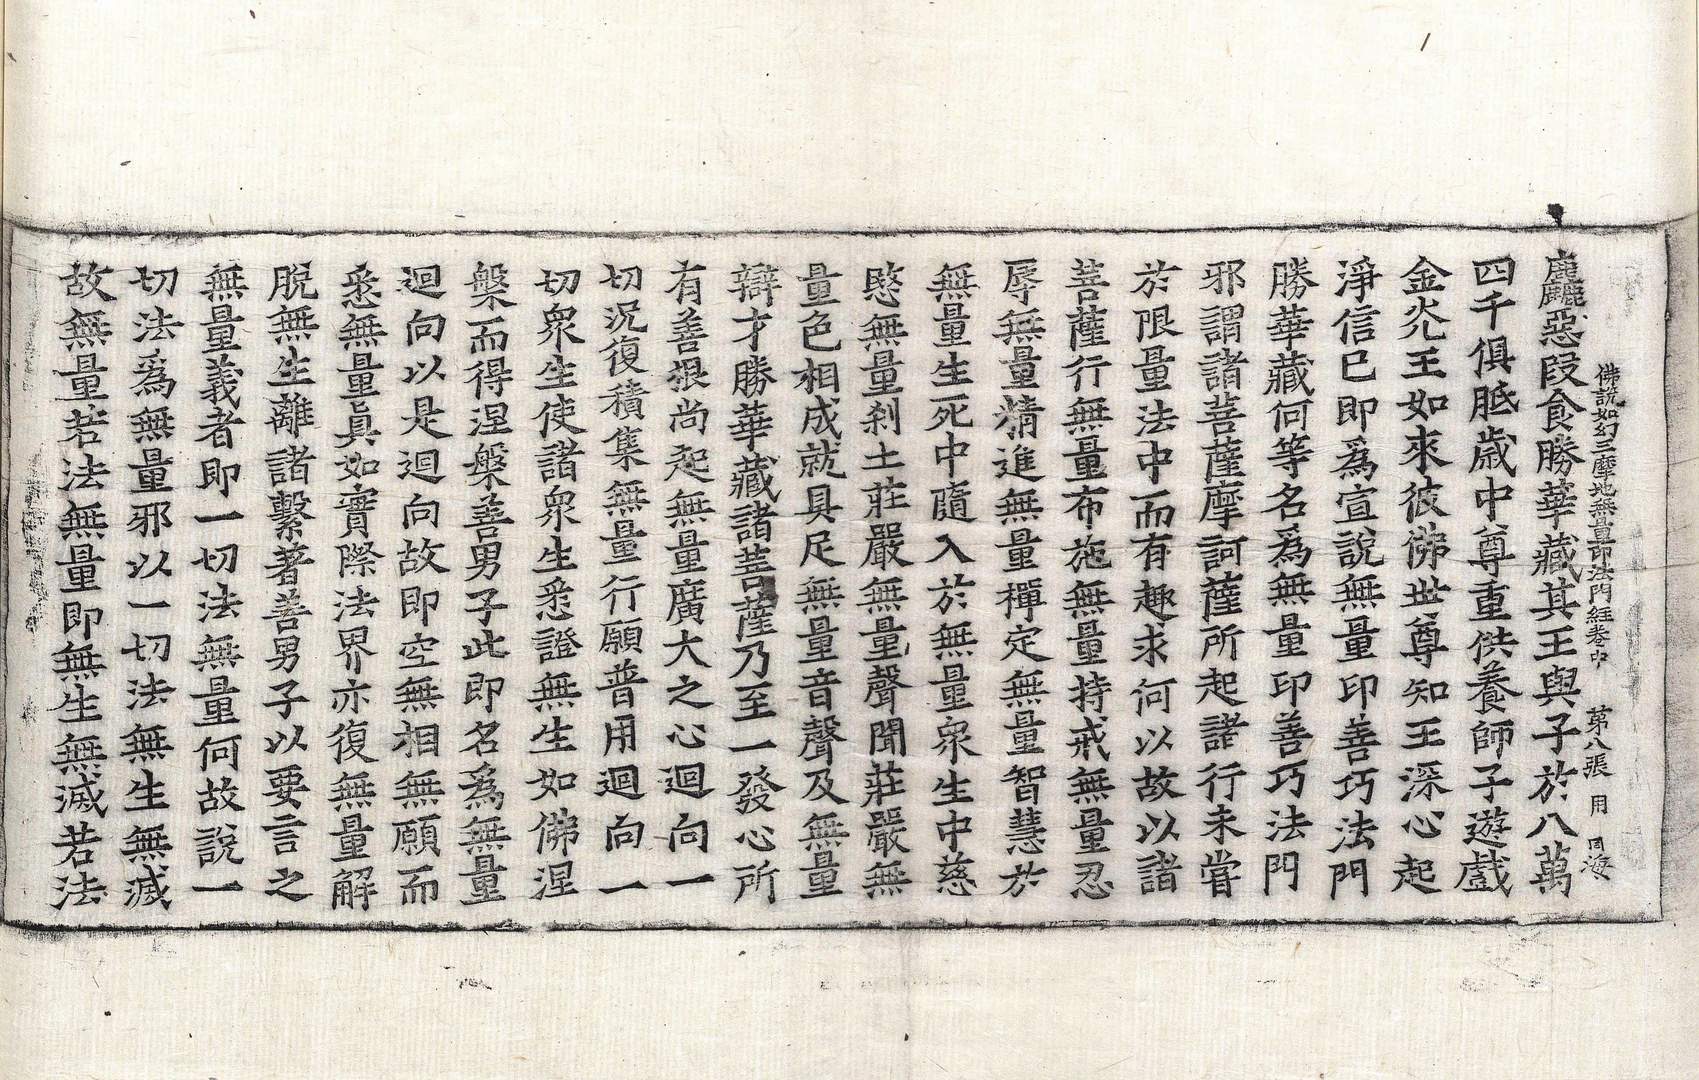 佛說如幻三摩地無量印法門經卷中 第八張 用 海
麤惡段食勝華藏其王與子於八萬
四千俱胝歲中尊重供養師子遊戲
金光王如來彼佛世尊知王深心起
淨信已即爲宣說無量印善巧法門
勝華藏何等名爲無量印善巧法門
邪謂諸菩薩摩訶薩所起諸行未嘗
於限量法中而有趣求何以故以諸
菩薩行無量布施無量持戒無量忍
辱無量精進無量禪定無量智慧於
無量生死中隨入於無量衆生中慈
愍無量剎土莊嚴無量聲聞莊嚴無
量色相成就具足無量音聲及無量
辯才勝華藏諸菩薩乃至一發心所
有善根尚起無量廣大之心迴向一
切況復積集無量行願普用迴向一
切衆生使諸衆生悉證無生如佛涅
槃而得涅槃善男子此即名爲無量
迴向以是迴向故即空無相無願而
悉無量眞如實際法界亦復無量解
脫無生離諸繫著善男子以要言之
無量義者即一切法無量何故說一
切法爲無量邪以一切法無生無滅
故無量若法無量即無生無滅若法